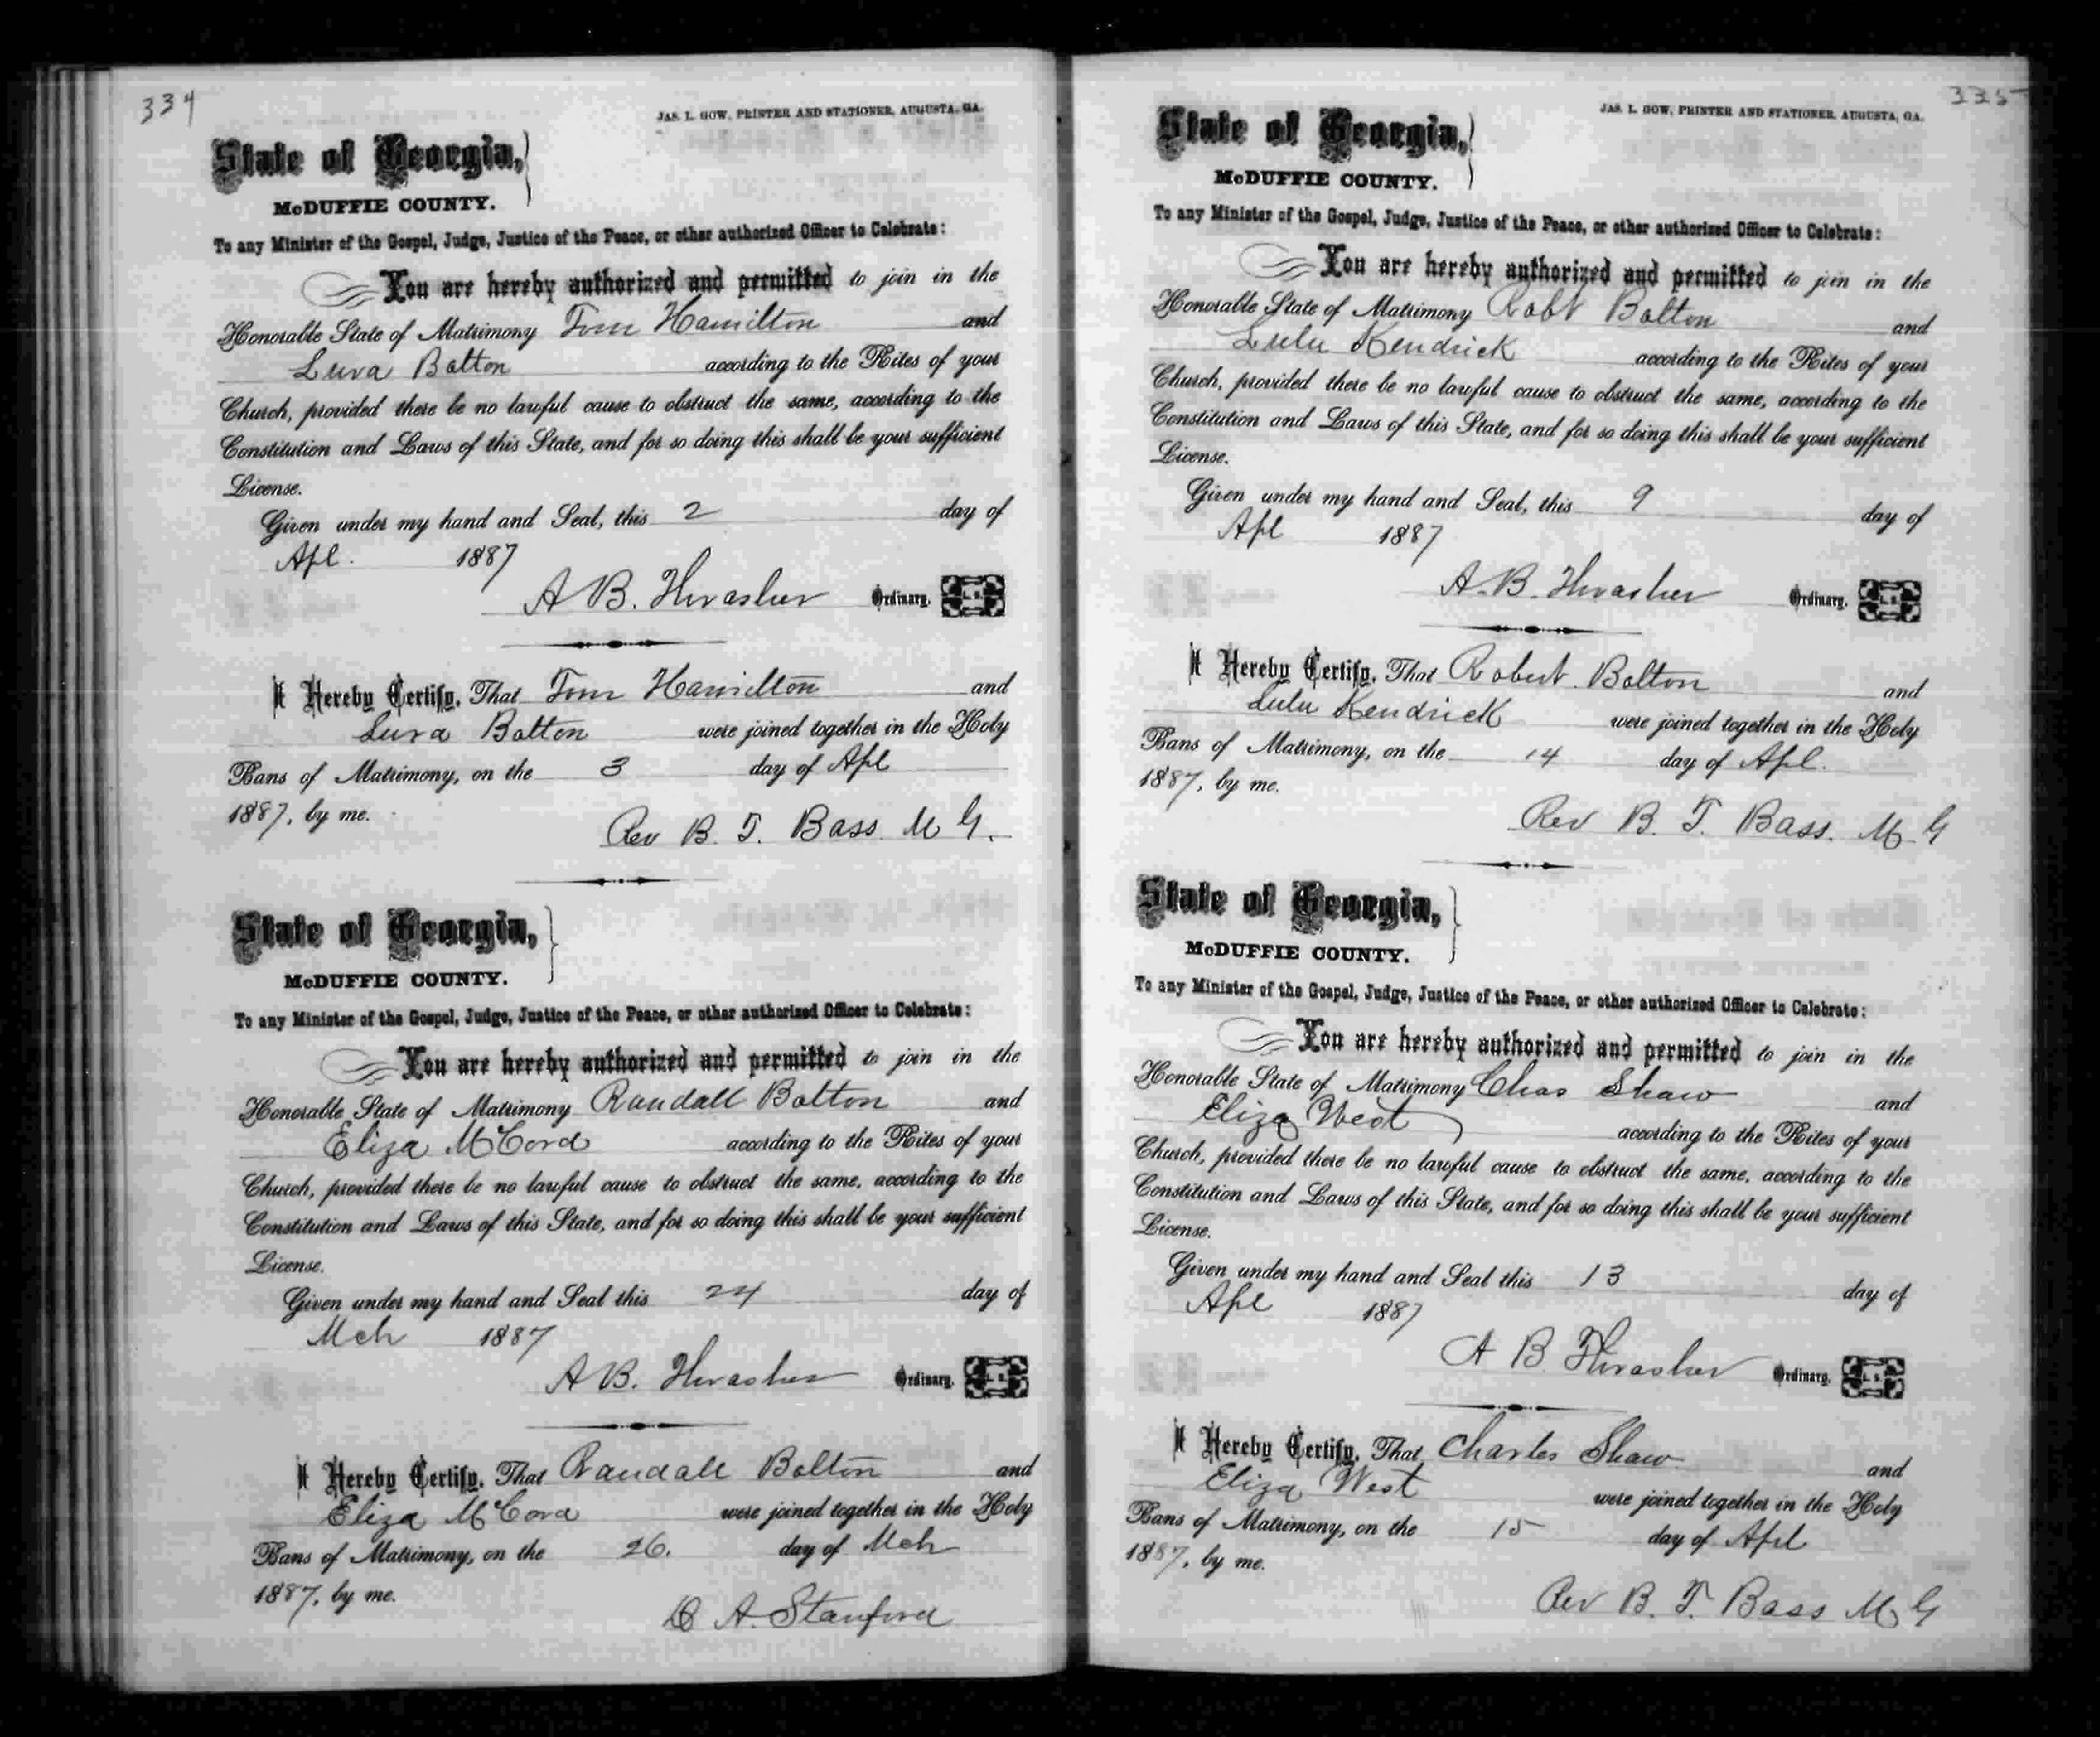 334
JAS. L. GOW, PRINTER AND STATIONER, AUGUSTA, GA.
State of Georgia,
McDUFFIE COUNTY.
To any Minister of the Gospel, Judge, Justice of the Peace, or other authorized Officer to Celebrate:
You are hereby authorized and permitted to join in the
Honorable State of Matrimony Tom Hamilton and
Luva Bolton according to the Rites of your
Church, provided there be no lawful cause to obstruct the same, according to the
Constitution and Laws of this State, and for so doing this shall be your sufficient
License.
Given under my hand and Seal, this 2 day of
Apl. 1887
A B. Thrasher Ordinary. L. S.
I Hereby Certify, That Tom Hamilton and
Luva Bolton were joined together in the Holy
Bans of Matrimony, on the 3 day of Apl
1887, by me.
Rev B. T. Bass M G.
State of Georgia,
McDUFFIE COUNTY.
To any Minister of the Gospel, Judge, Justice of the Peace, or other authorized Officer to Celebrate:
You are hereby authorized and permitted to join in the
Honorable State of Matrimony Randall Bolton and
Eliza McCord according to the Rites of your
Church, provided there be no lawful cause to obstruct the same, according to the
Constitution and Laws of this State, and for so doing this shall be your sufficient
License.
Given under my hand and Seal this 24 day of
Mch 1887
A B. Thrasher Ordinary. L. S.
I Hereby Certify, That Randall Bolton and
Eliza McCord were joined together in the Holy
Bans of Matrimony, on the 26. day of Mch
1887, by me.
A. Stanford
335
JAS. L. GOW, PRINTER AND STATIONER, AUGUSTA, GA.
State of Georgia,
McDUFFIE COUNTY.
To any Minister of the Gospel, Judge, Justice of the Peace, or other authorized Officer to Celebrate:
You are hereby authorized and permitted to join in the
Honorable State of Matrimony Robt Bolton and
Lulu Kendrick according to the Rites of your
Church, provided there be no lawful cause to obstruct the same, according to the
Constitution and Laws of this State, and for so doing this shall be your sufficient
License.
Given under my hand and Seal, this 9 day of
Apl 1887
A. B. Thrasher Ordinary. L. S.
I Hereby Certify, That Robert Bolton and
Lulu Kendrick were joined together in the Holy
Bans of Matrimony, on the 14 day of Apl.
1887, by me.
Rev B. T. Bass. M. G
State of Georgia,
McDUFFIE COUNTY.
To any Minister of the Gospel, Judge, Justice of the Peace, or other authorized Officer to Celebrate:
You are hereby authorized and permitted to join in the
Honorable State of Matrimony Chas Shaw and
Eliza West according to the Rites of your
Church, provided there be no lawful cause to obstruct the same, according to the
Constitution and Laws of this State, and for so doing this shall be your sufficient
License.
Given under my hand and Seal this 13 day of
Apl 1887
A B Thrasher Ordinary. L. S.
I Hereby Certify, That Charles Shaw and
Eliza West were joined together in the Holy
Bans of Matrimony, on the 15 day of Apl
1887, by me.
Rev B. T. Bass M G